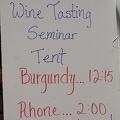 Wine Tasting
Seminar
Tent
Burgundy... 12:15
Rhone... 2:00